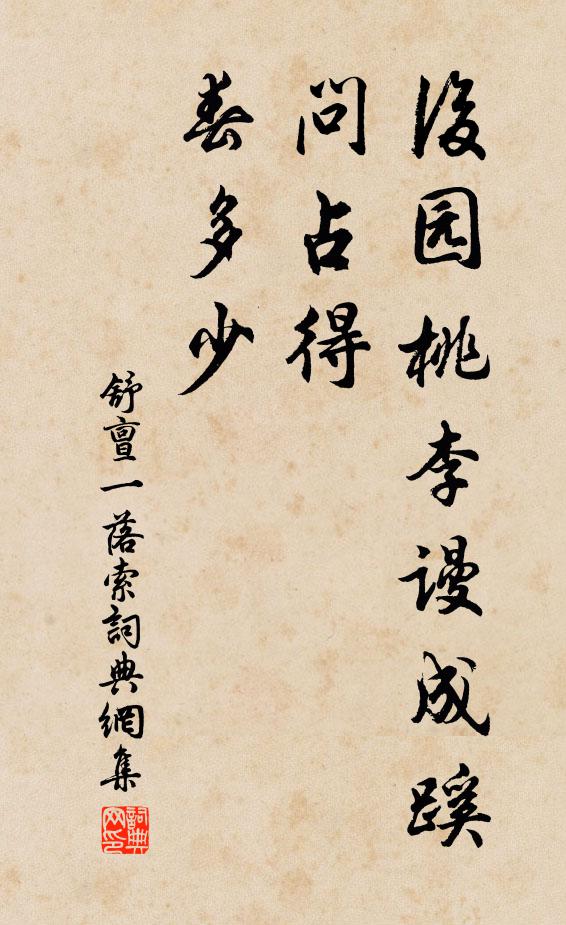 後园桃李谩成蹊
問占得
春多少
舒亶一落索詞典網集
詞典网印